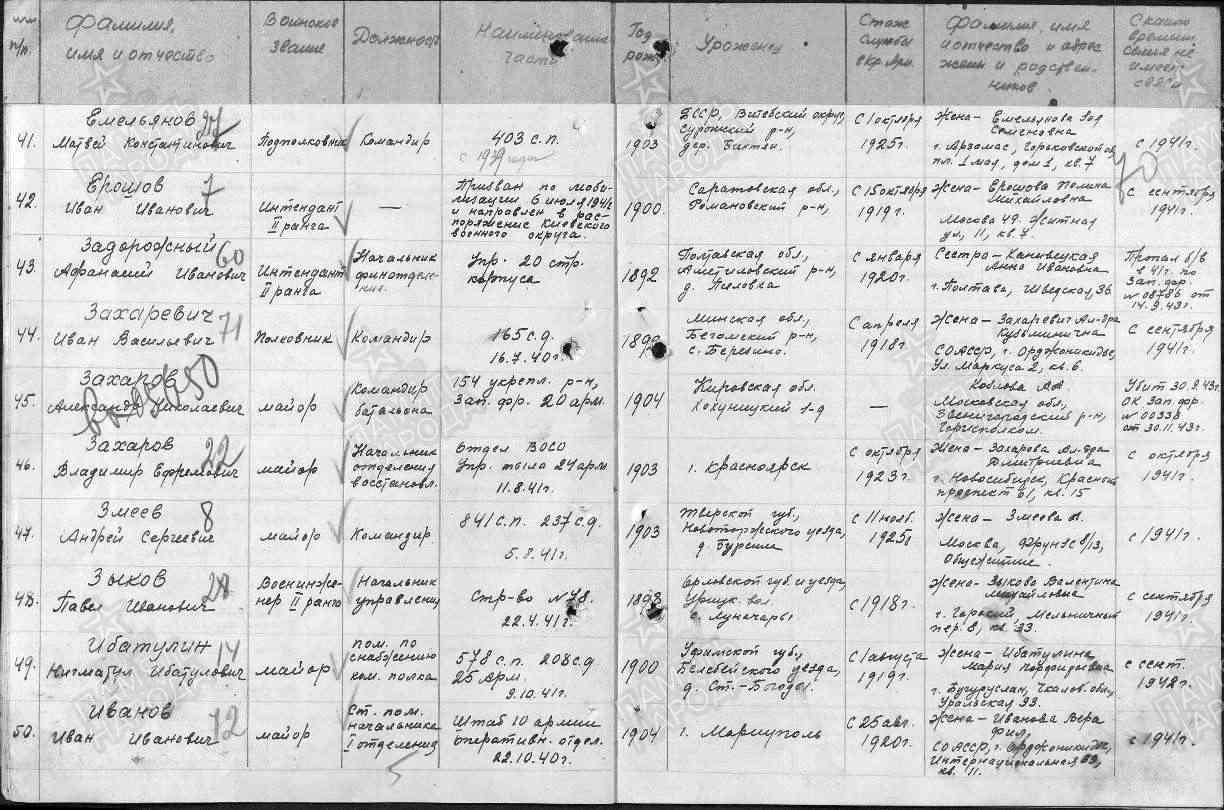 №№ п/п.
Фамилия, имя и отчество
Воинское звание
Должность
Наименование части
Год рожд.
Уроженец
Стаж службы в Кр. Арм.
Фамилия, имя и отчество и адрес жены и родственников
С какого времени семья не имеет связи
41.
Емельянов
Матвей Константинович
27
Подполковник
Командир
403 с.п.
с 1939 года
1903
БССР, Витебский округ,
Суражский р-н,
дер.
С 1 октября
1925г.
Жена – Емельянова Зоя
Семеновна
г. Арзамас, Горьковской об.
пл. 1 мая, дом 1, кв. 7
с 1941г.
70
42.
Ерошов
Иван Иванович
7
Интендант
II ранга
—
Призван по моби-
лизации 6 июля 1941г.
и направлен в рас-
поряжение Киевского
военного округа.
1900.
Саратовская обл,
Романовский р-н,
С 15 октября
1919г.
Жена – Ерошова Полина
Михайловна
Москва 49. Житная
ул, 11, кв. 7.
с сентября
1941г.
43.
Задорожный
Афанасий Иванович
60
Интендант
II ранга
Начальник
финотделе-
ния.
Упр. 20 стр.
корпуса
1892
Полтавская обл,
р-н,
д. Пиловка
С января
1920г.
Сестра –
Анна Ивановна
г. Полтава, Шведская, 36
Пропал б/в
в 41г. по
Зап. дор.
№ 08786 от
14.9.43г.
44.
Захаревич
Иван Васильевич
71
Полковник
Командир
165 с.д.
16.7.40г.
Минская обл,
Бегомский р-н,
с. Березино.
С апреля
1918г.
Жена – Захаревич Ал-дра
Кузьминична
СОАССР, г. Орджоникидзе,
Ул. Маркуса 2, кв. 6.
с сентября
1941г.
45.
Захаров
Александр Николаевич
майор
Командир
батальона
154 укрепл. р-н,
Зап. фр. 20 арм.
1904
Кировская обл.
—
Козлова
Московская обл,
Звенигородский р-н,
Горисполком.
Убит 30.9.43г
ОК Зап. дор.
№ 00338
от 30.11.43г.
46.
Захаров
Владимир Ефремович
22
майор
Начальник
отделения
восстановл.
Отдел ВОСО
Упр. тыла 24 арм
11.8.41г.
1903
г. Красноярск
С октября
1923г.
Жена – Захарова Ал-дра
Дмитриевна
г. Новосибирск, Красный
проспект 61, кв. 15
с октября
1941г.
47.
Змеев
Андрей Сергеевич
8
майор
Командир
841 с.п. 237 с.д.
5.8.41г.
1903
Тверской губ,
Новоторжского уезда,
д.
С 11 нояб.
1925г
Жена – Змеева А.
Москва, Фрунзе 8/13,
Общежитие.
с 1941г.
48.
Зыков
Павел Иванович
28
Военинже-
нер II ранга
Начальник
управления
Стр-во № 78.
22.4.41г.
1898
Орловской губ и уезда,
вол.
с. Луначары
с 1918г.
Жена – Зыкова Валентина
Михайловна
г. Горький, Мельничный
пер. 8, кв. 33.
с сентября
1941г.
49.
Ибатулин
Нигматул Ибатулович
14
майор
пом. по
снабжению
ком. полка
578 с.п. 208 с.д
25 арм.
9.10.41г.
1900
Уфимской губ,
Белебейского уезда,
д. Ст.-
С 1 августа
1919г.
Жена – Ибатулина
Мария
г. Бугуруслан, Чкалов. обл,
Уральская 93.
с сент.
1942г.
50.
Иванов
Иван Иванович
72
майор
Ст. пом.
начальника
I отделения
5
Штаб 10 армии
Оперативн. отдел.
22.10.40г.
1904
г. Мариуполь
С 25 авг.
1920г.
Жена – Иванова Вера
Фил,
СОАССР, г. Орджоникидзе,
Интернациональная 83,
кв. 11.
с 1941г.